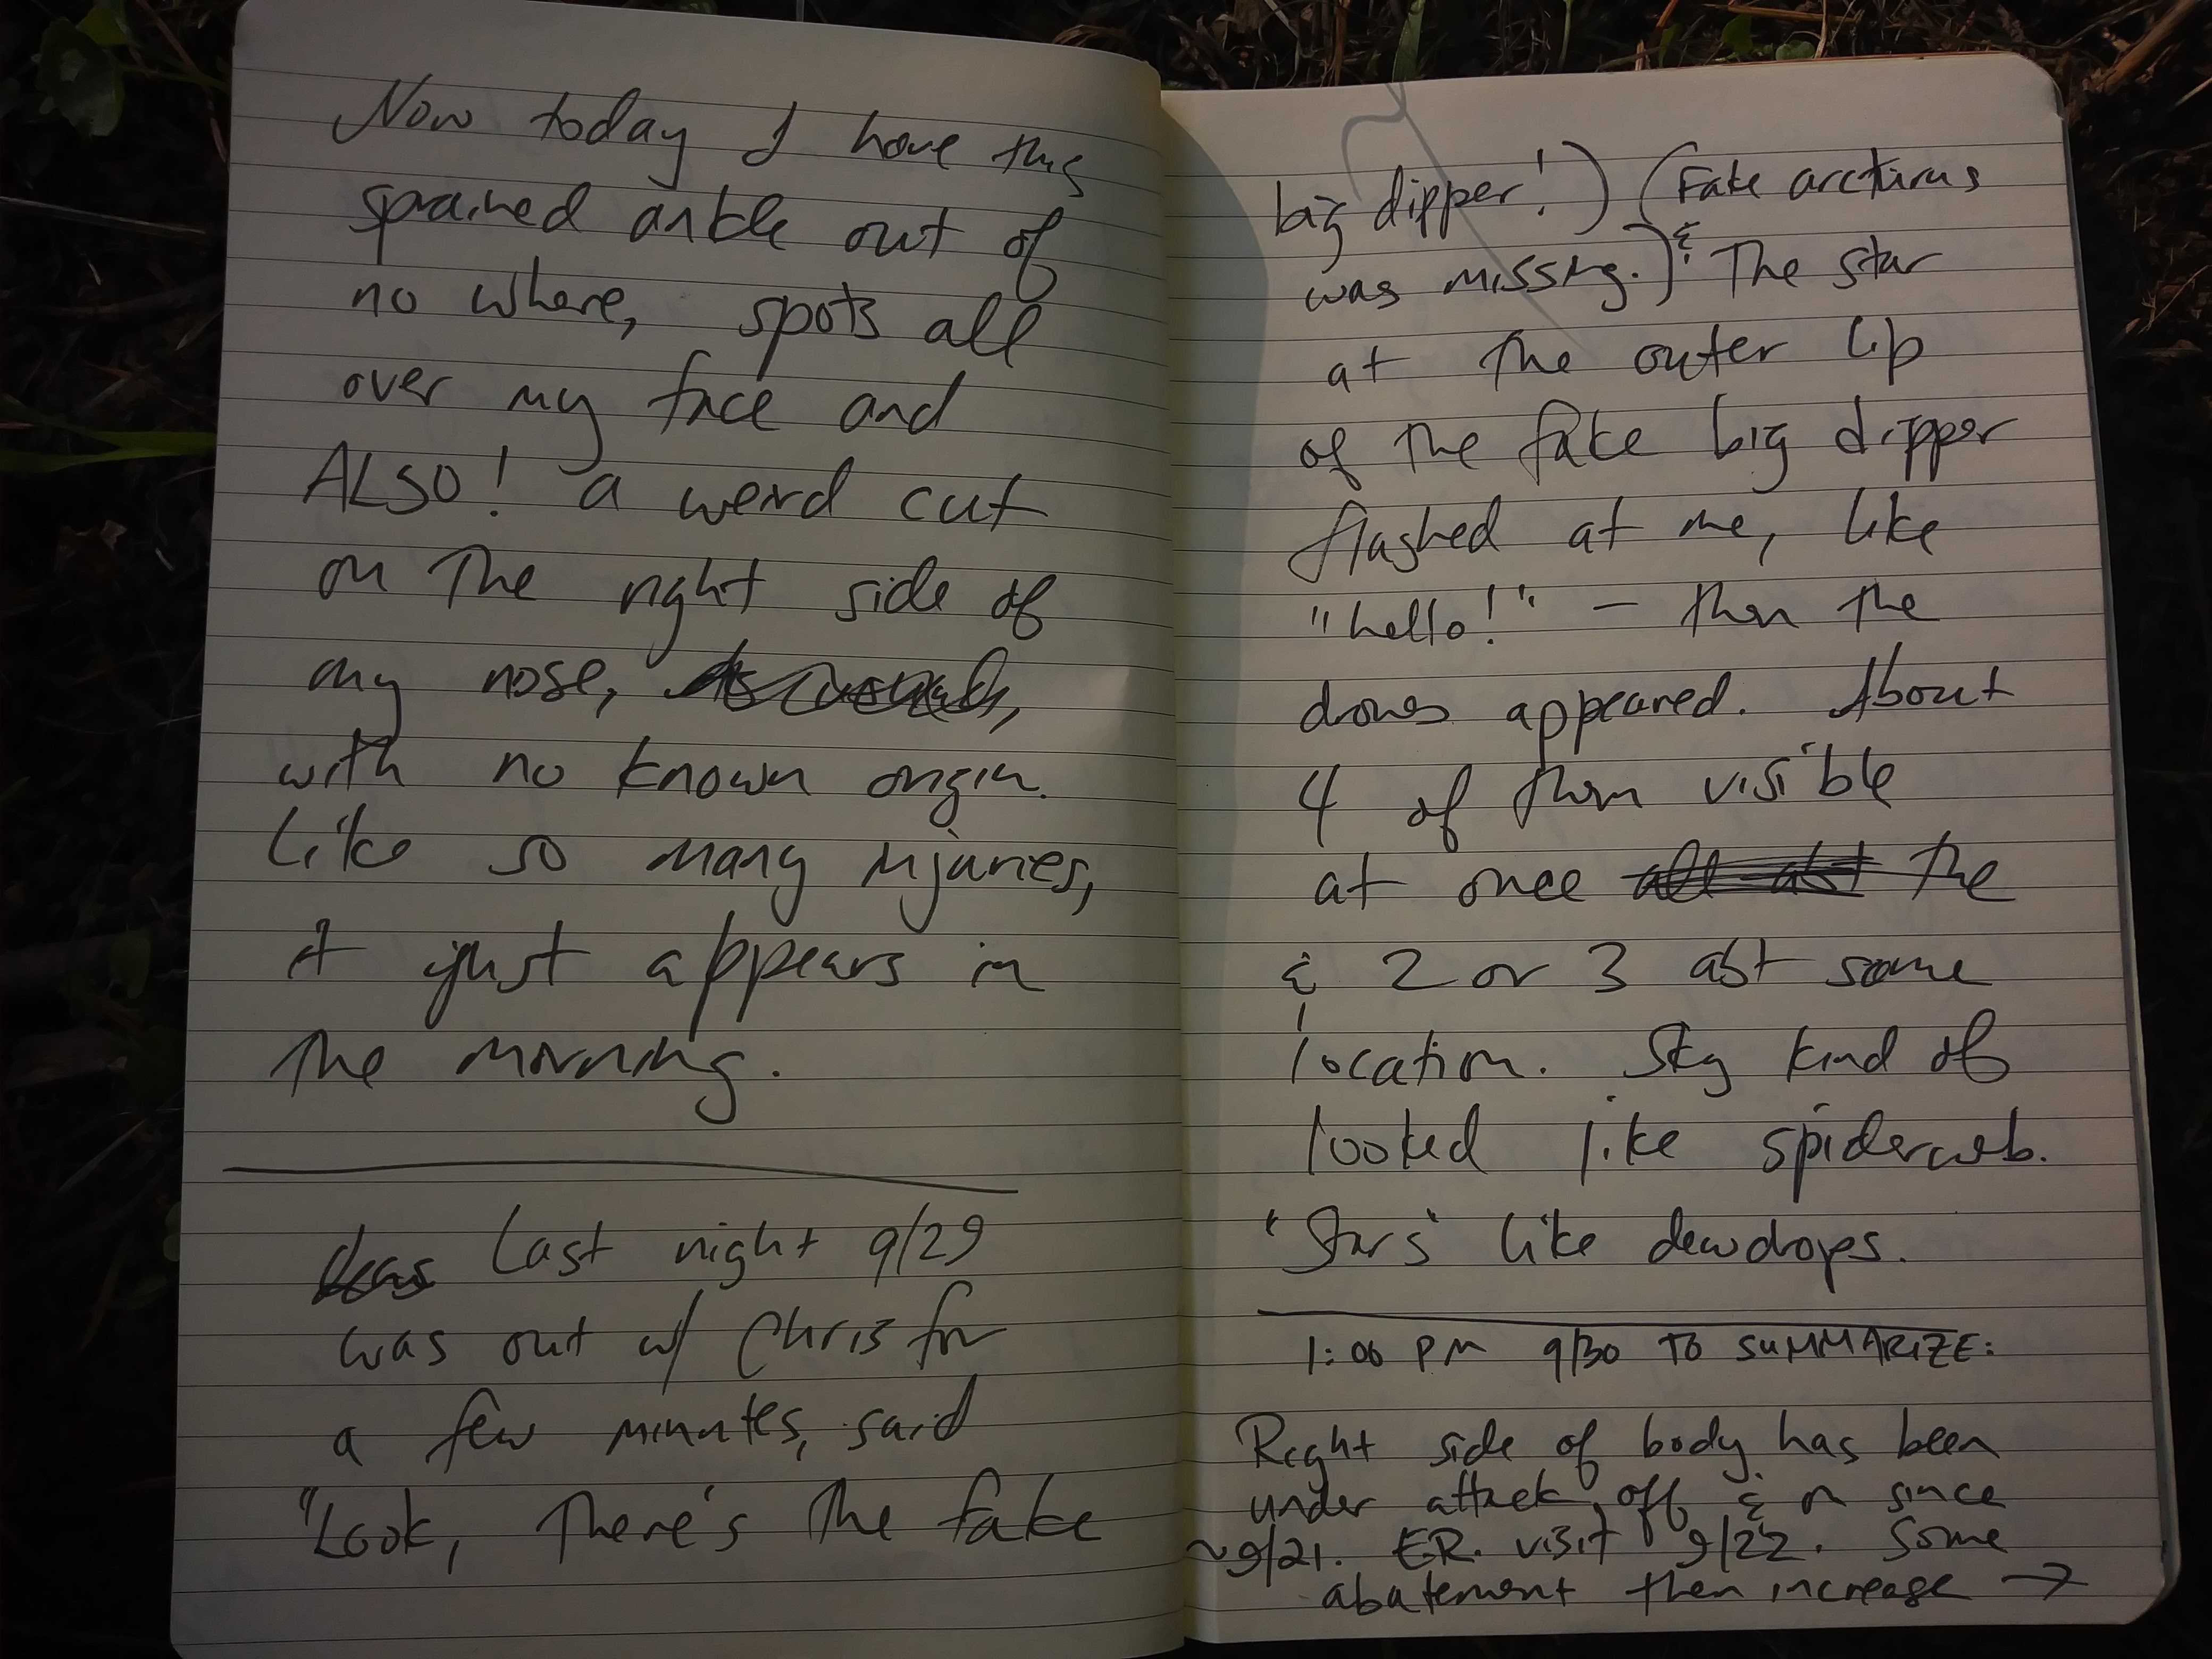 Now today I have this
sprained ankle out of
no where, spots all
over my face and
ALSO! a weird cut
on the right side of
my nose,
with no known origin.
Like so many injuries,
it just appears in
the morning.
Last night 9/29
was out w/ Chris for
a few minutes, said
"Look, There's the fake
big dipper!) (Fake arcturus
was missing.) & The star
at the outer lip
of the fake big dipper
flashed at me, like
"hello!" - then the
drones appeared. About
4 of them visible
at once the
& 2 or 3 abt same
location. Sky kind of
looked like spiderweb.
"Stars" like dewdrops.
1:06 PM 9/30 TO SUMMARIZE:
Right side of body has been
under attack off & on since
~9/21. ER. visit 9/22. Some
abatement then increase →